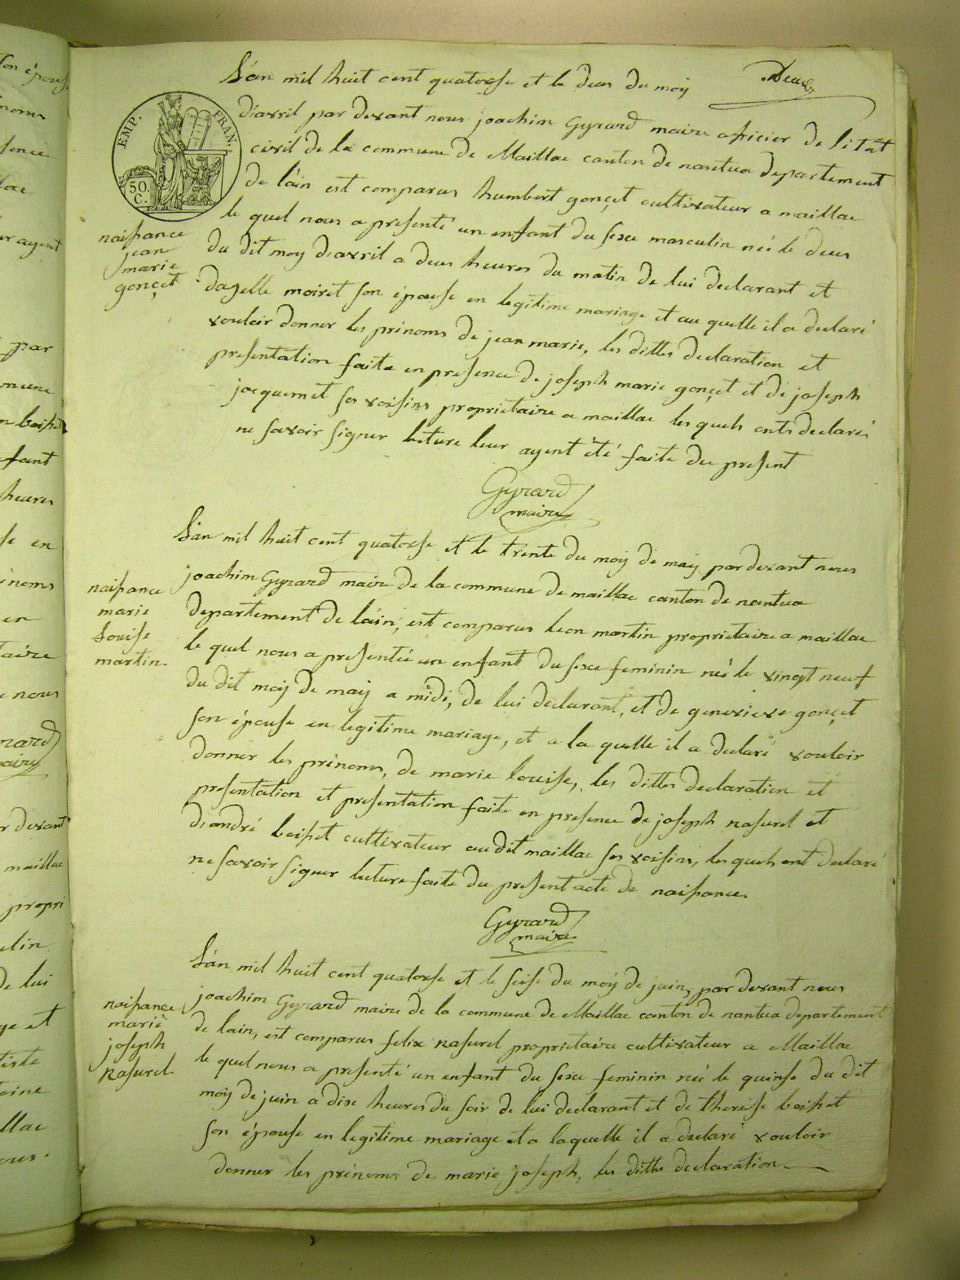 Deux
L'an mil huit cent quatorse et le deus du moy
d'avril par devant nous joachim Gyrard maire oficier de l'etat
civil de la commune de Maillac canton de nantua departement
de l'ain est comparus humbert gonçet cultivateur a maillac
le quel nous a presenté un enfant du sexe masculin née le deus
du dit moy d'avril a deus heures du matin de lui declarant et
moiret son épouse en legitime mariage et au quelle il a declaré
vouloir donner les prénoms de jean marie, les dittes declaration et
presentation faite en presence de joseph marie gonçet et de joseph
jacquemet ses voisins propriétaire a maillac les quels onts declarés
ne savoir signer lecture leur ayent été faite du present
Gyrard
maire
EMP. FRAN.
50
C.
naissance
jean
marie
gonçet
L'an mil huit cent quatorse et le trente du moy de may par devant nous
joachim Gyrard maire de la commune de maillac canton de nantua
departement de l'ain, est comparus leon martin propriétaire a maillac
le quel nous a presentée un enfant du sexe feminin née le vingt neuf
du dit moy de may a midi, de lui declarant, et de genevieve gonçet
son épouse en legitime mariage, et a la quelle il a declaré vouloir
donner les prénoms, de marie louise, les dittes declaration et
presentation et presentation faite en presence de joseph nasurel et
d'andré boisset cultivateur au dit maillac ses voisins, les quels ont declaré
ne savoir signer lecture faite du present acte de naissance.
Gyrard
maire
naissance
marie
Louise
martin
L'an mil huit cent quatorse et le seise du moy de juin, par devant nous
joachim Gyrard maire de la commune de Maillac canton de nantua departement
de l'ain, est comparus felix nasurel propriétaire cultivateur a Maillac
le quel nous a presenté un enfant du sexe feminin née le quinse du dit
moy de juin a dix heures du soir de lui declarant et de therese boisset
son épouse en legitime mariage et a laquelle il a declaré vouloir
donner les prénoms de marie joseph, les dittes declaration
naissance
marie
joseph
nasurel